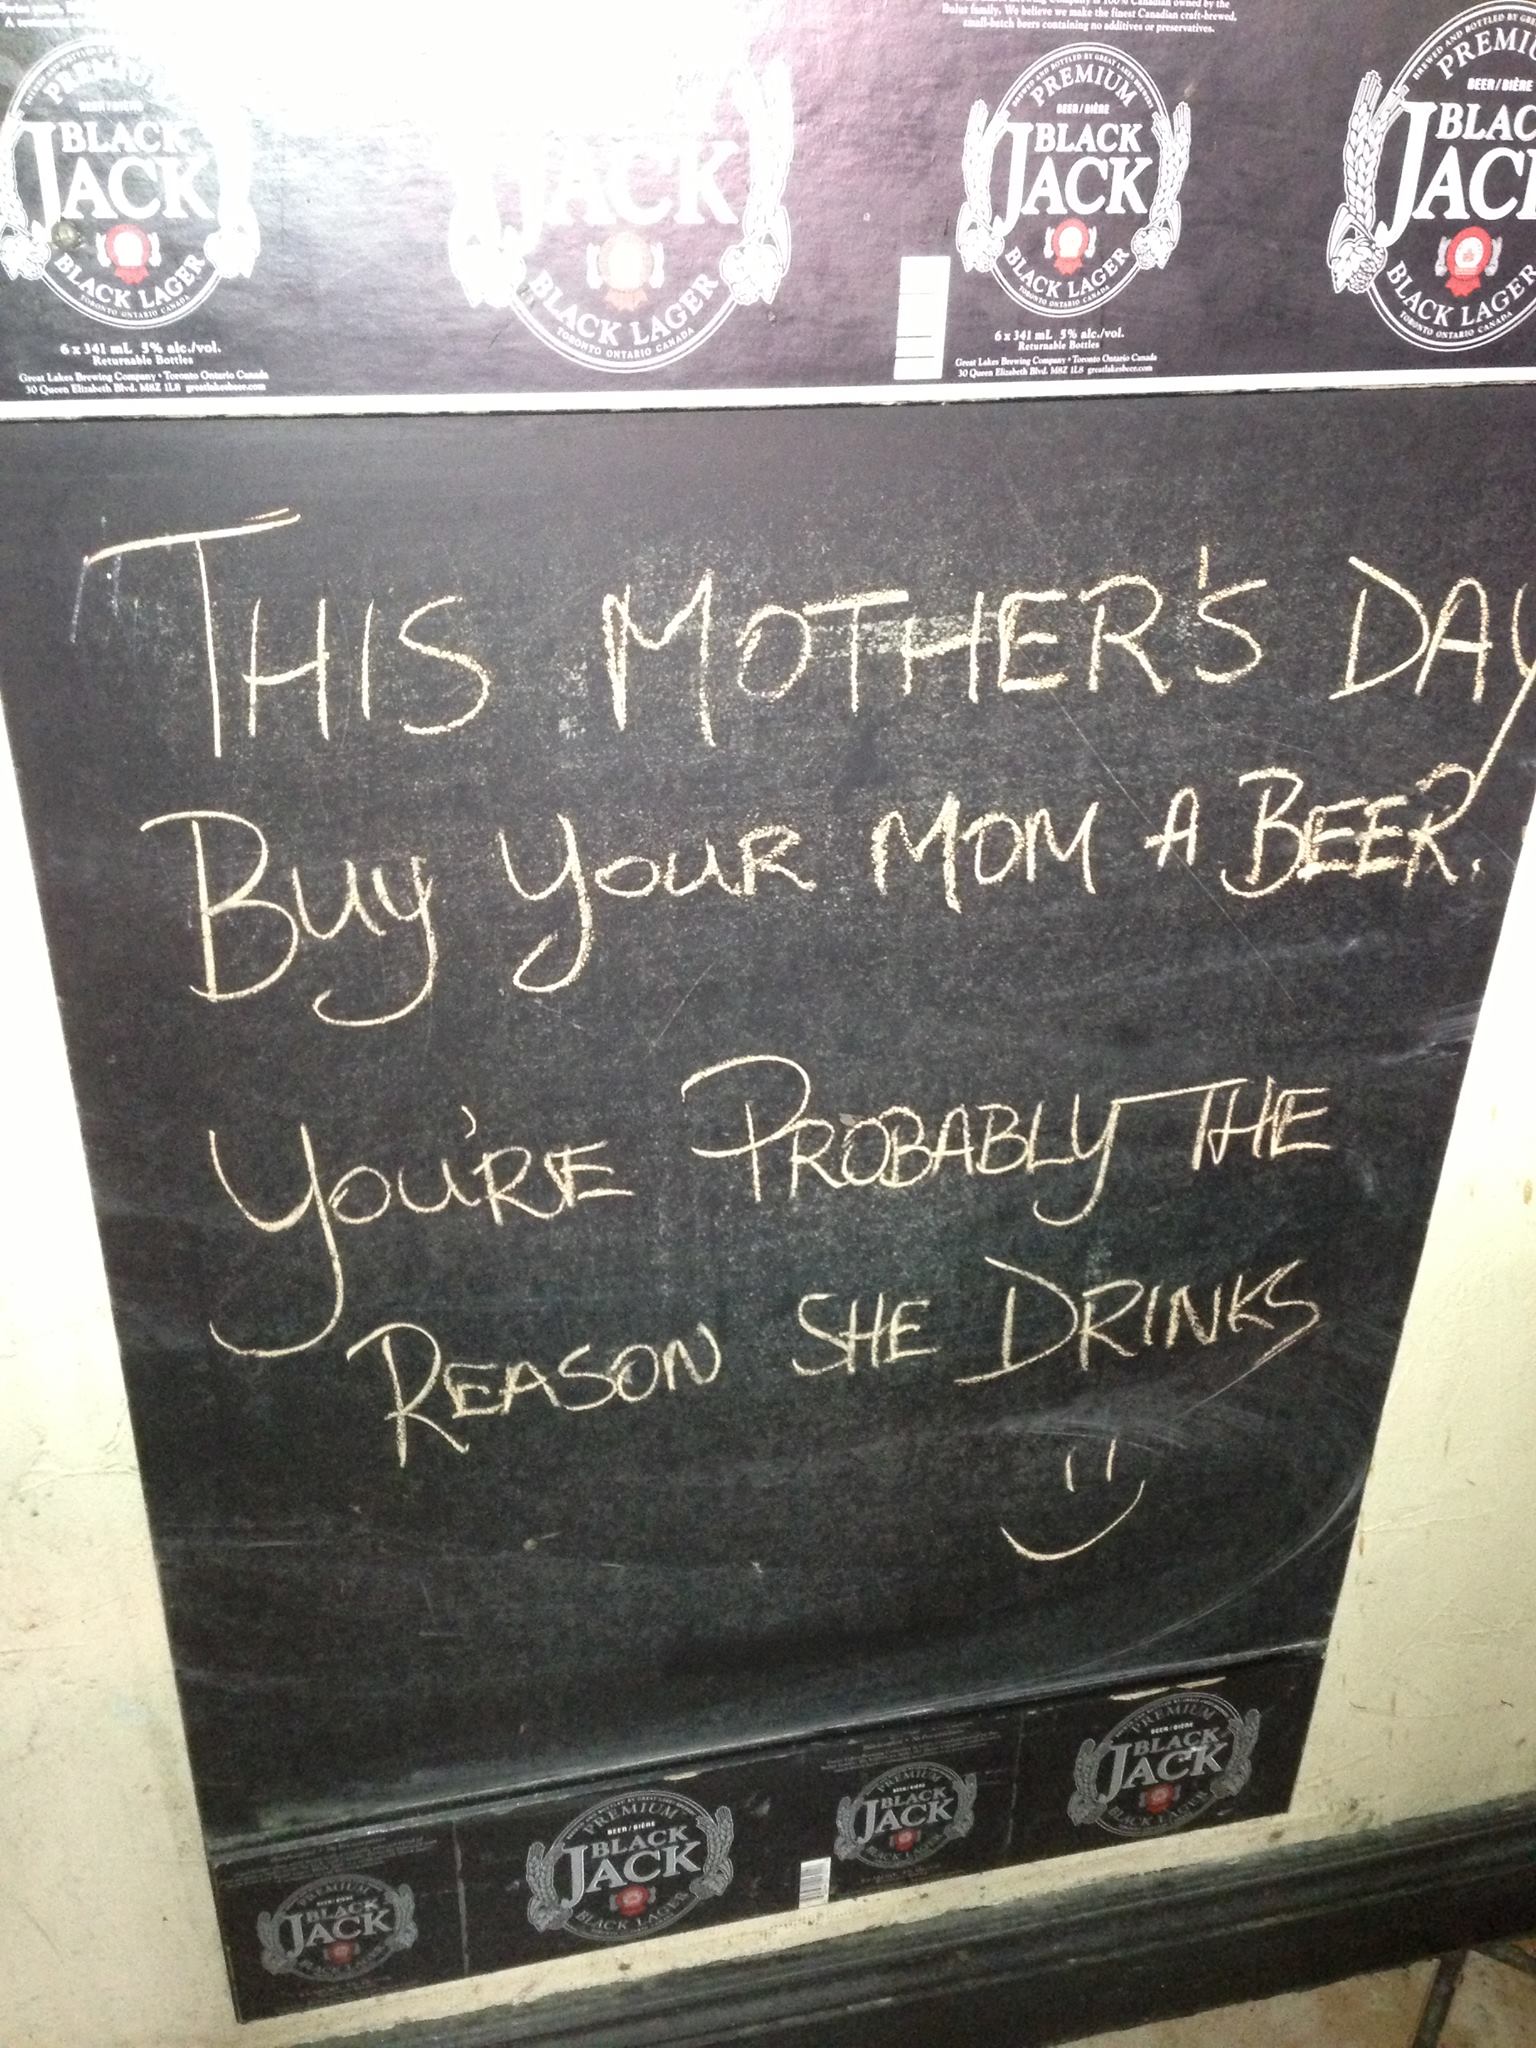 Company is 100% Canadian owned by the
Bulut family. We believe we make the finest Canadian craft-brewed,
small-batch beers containing no additives or preservatives.
PREMIUM
BEER/BIÈRE
BLACK
JACK
BLACK LAGER
TORONTO ONTARIO CANADA
6 x 341 mL 5% alc./vol.
Returnable Bottles
Great Lakes Brewing Company • Toronto Ontario Canada
30 Queen Elizabeth Blvd. M8Z 1L8 greatlakesbeer.com
JACK
BLACK LAGER
TORONTO ONTARIO CANADA
BREWED AND BOTTLED BY GREAT LAKES BREWERY
PREMIUM
BEER/BIÈRE
BLACK
JACK
BLACK LAGER
TORONTO ONTARIO CANADA
6 x 341 mL 5% alc./vol.
Returnable Bottles
Great Lakes Brewing Company • Toronto Ontario Canada
30 Queen Elizabeth Blvd. M8Z 1L8 greatlakesbeer.com
BREWED AND BOTTLED BY GRE
PREMIU
BEER/BIÈRE
BLAC
JACK
BLACK LAGER
TORONTO ONTARIO CANADA
THIS MOTHER'S DAY
BUY YOUR MOM A BEER.
YOU'RE PROBABLY THE
REASON SHE DRINKS
PREMIUM
BEER/BIÈRE
BLACK
JACK
BLACK LAGER
PREMIUM
BEER/BIÈRE
BLACK
JACK
BLACK LAGER
PREMIUM
BEER/BIÈRE
BLACK
JACK
BLACK LAGER
PREMIUM
BEER/BIÈRE
BLACK
JACK
BLACK LAGER